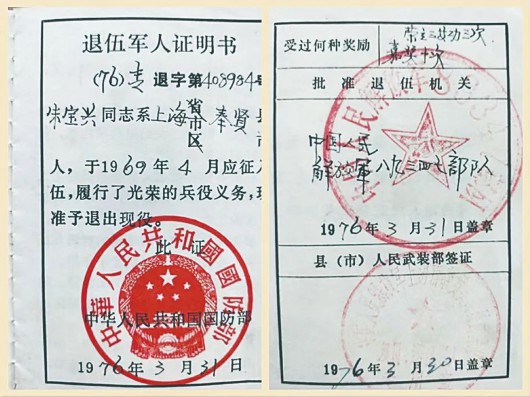 退伍军人证明书
(76)专 退字第408984号
朱宝兴同志系上海省市区奉贤县市
人，于1969年4月应征入
伍，履行了光荣的兵役义务，现
准予退出现役。
此证
中华人民共和国国防部
中華人民共和國國防部
1976年3月31日
受过何种奖励
荣立三等功三次
嘉奖十次
批准退伍机关
中国人民
解放军八九三四七部队
1976年3月31日盖章
县（市）人民武装部签证
1976年3月30日盖章